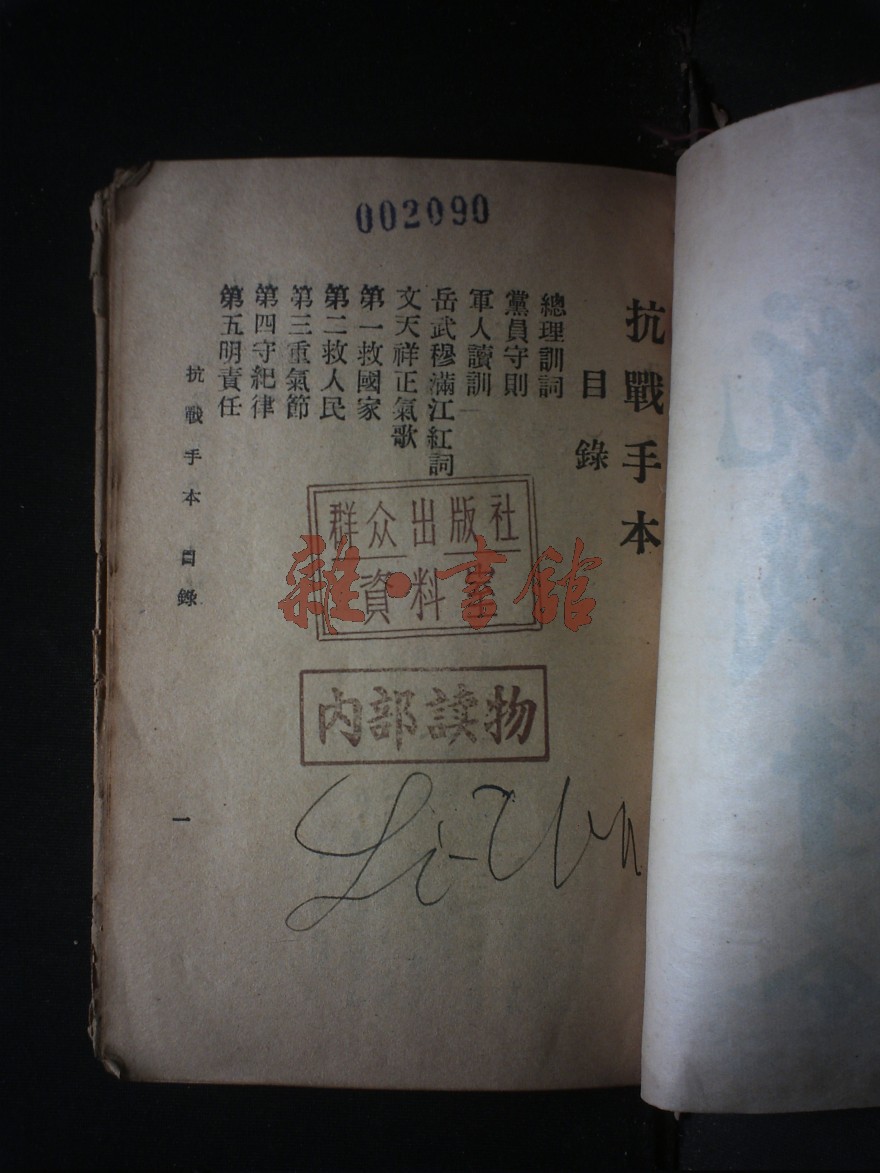 002090
抗戰手本
目錄
總理訓詞
黨員守則
軍人讀訓
岳武穆滿江紅詞
文天祥正氣歌
第一救國家
第二救人民
第三重氣節
第四守紀律
第五明責任
抗戰手本 目錄
一
群众出版社
資料室
雜·書館
内部读物